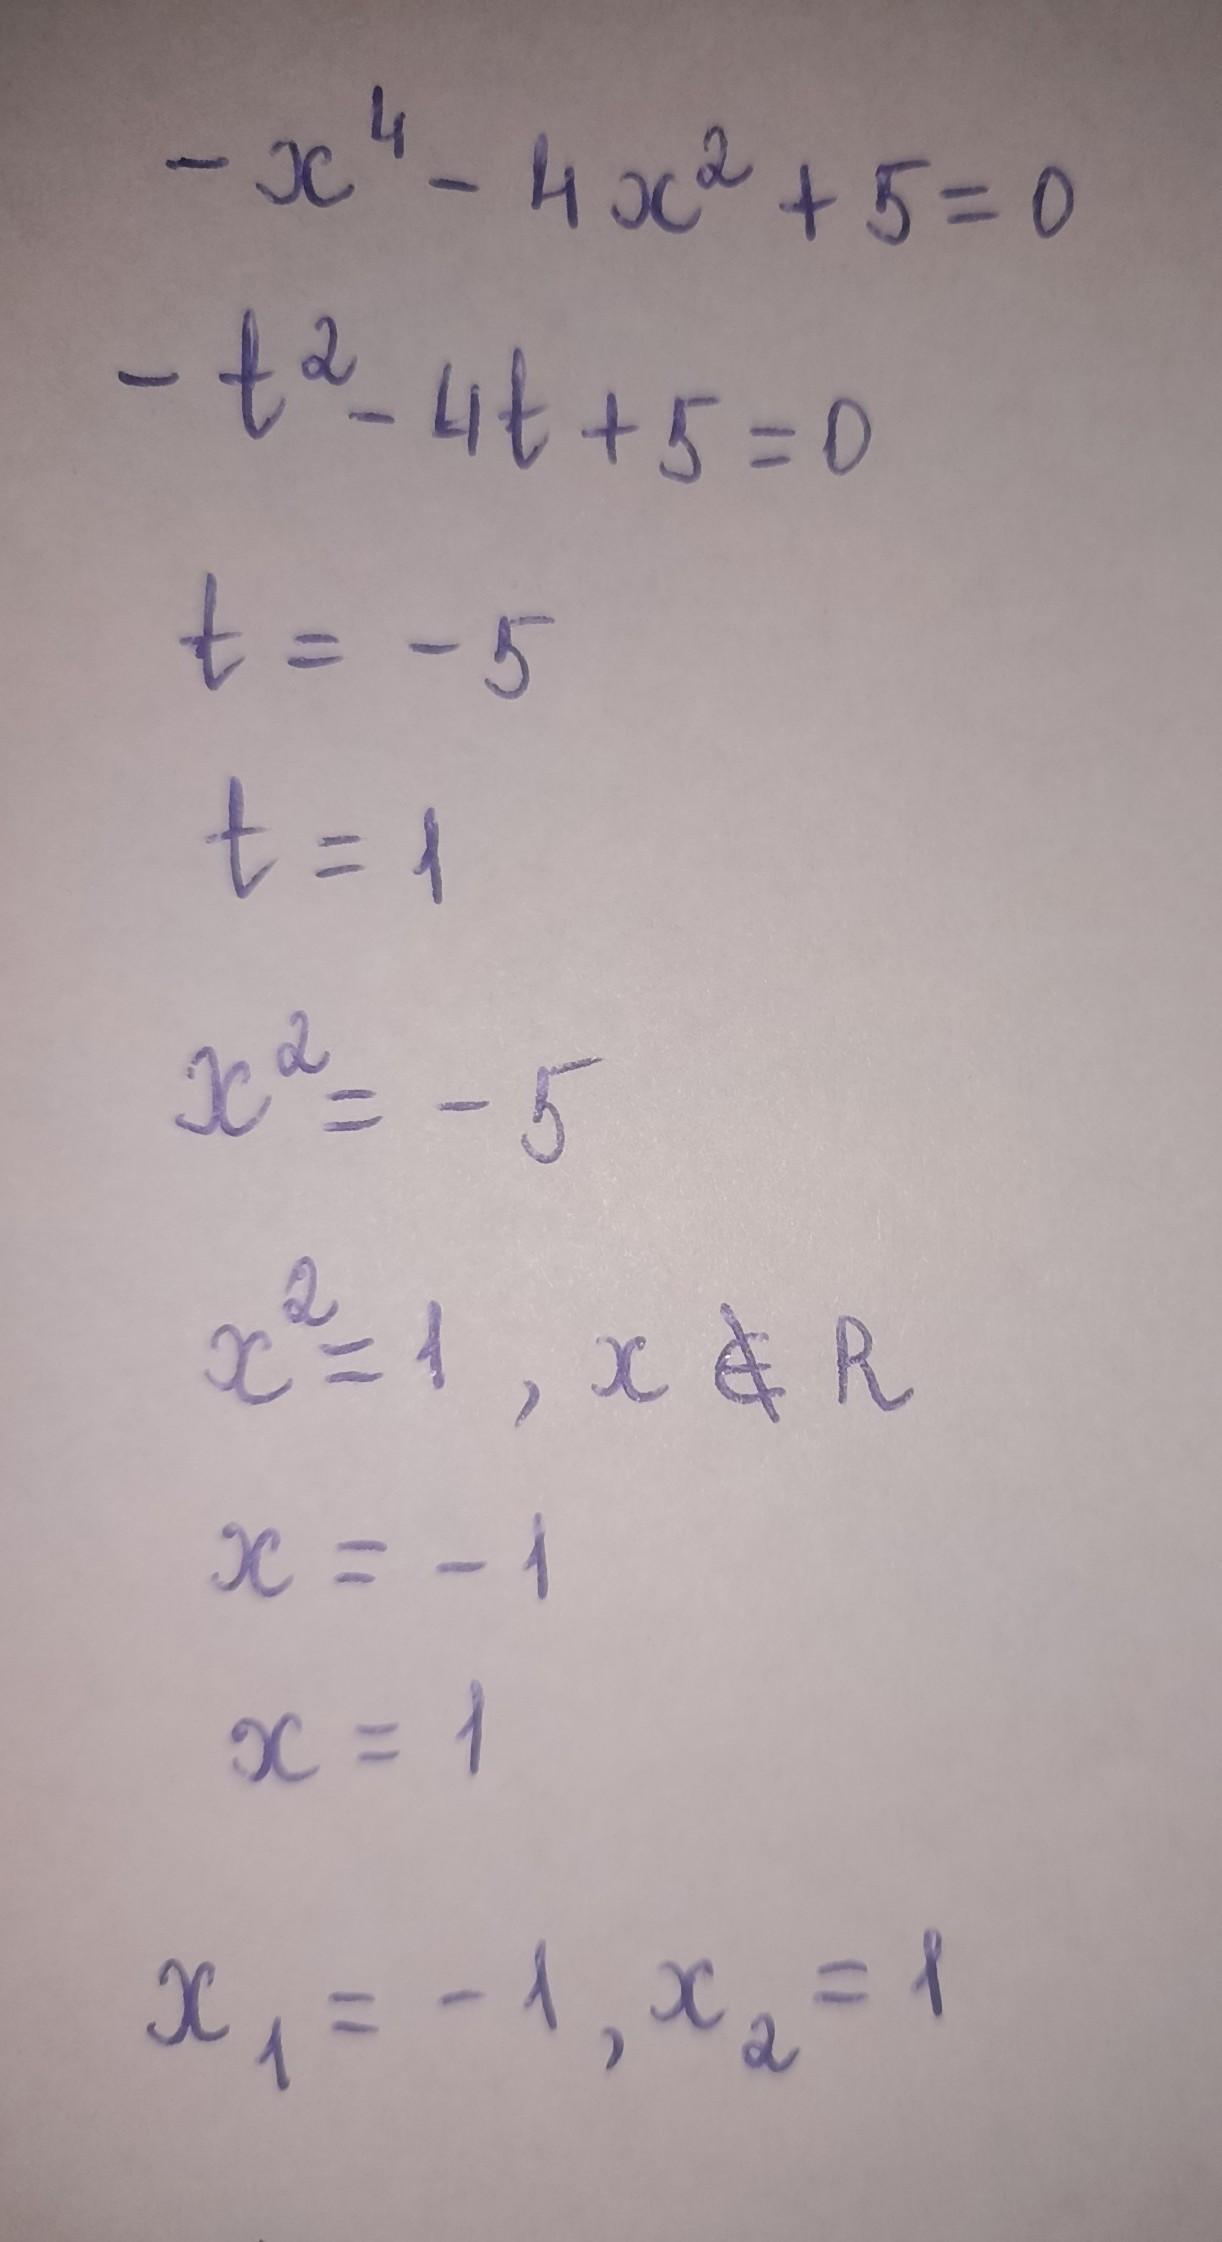 -x⁴ - 4x² + 5 = 0
-t² - 4t + 5 = 0
t = -5
t = 1
x² = -5
x² = 1, x ∉ R
x = -1
x = 1
x₁ = -1, x₂ = 1